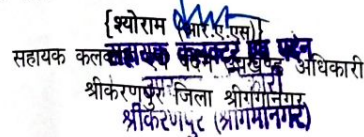 {श्योराम (आर.ए.एस)}
सहायक कलक्टर एवं पदेन उपखण्ड अधिकारी
श्रीकरणपुर जिला श्रीगंगानगर
सहायक कलक्टर एवं पदेन
श्रीकरणपुर (श्रीगंगानगर)